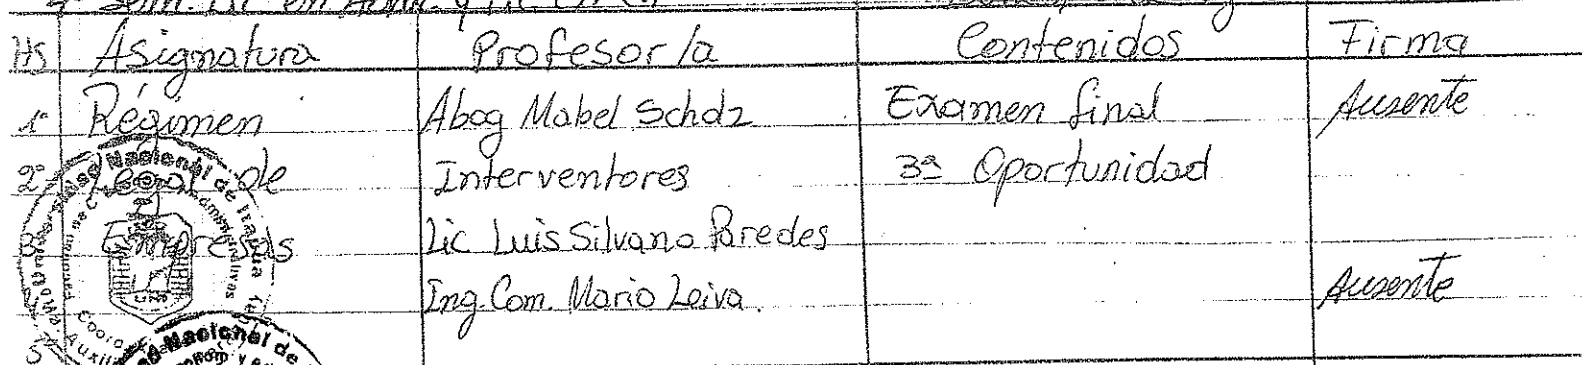 Hs Asignatura Profesor/a Contenidos Firma
1º Régimen Abog Mabel Scholz Examen final Ausente
2º Legal de Interventores 3ª Oportunidad
3º Empresas Lic Luis Silvano Paredes
4º Ing. Com. Mario Leiva. Ausente
5º
Nacional de Itapúa
Nacional de